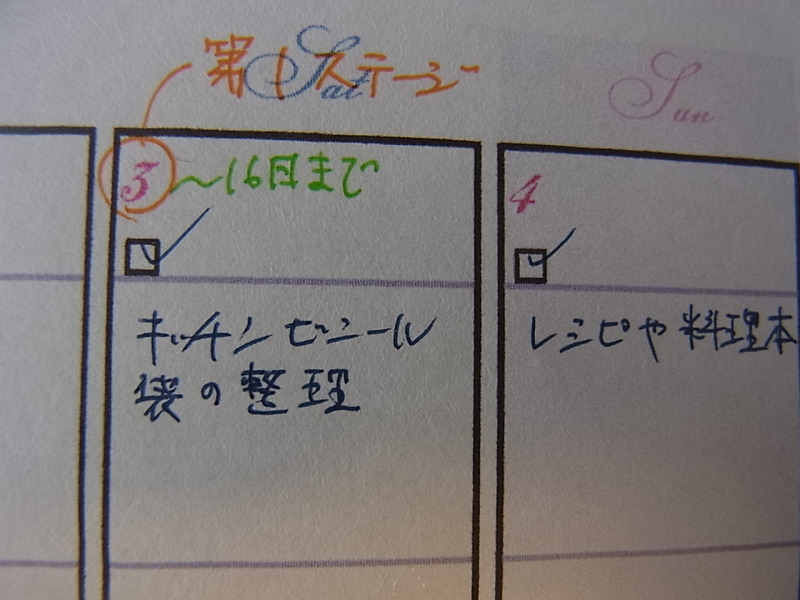 第1ステージ
Sat
Sun
3 〜16日まで
4
キッチンビニール
袋の整理
レシピや料理本